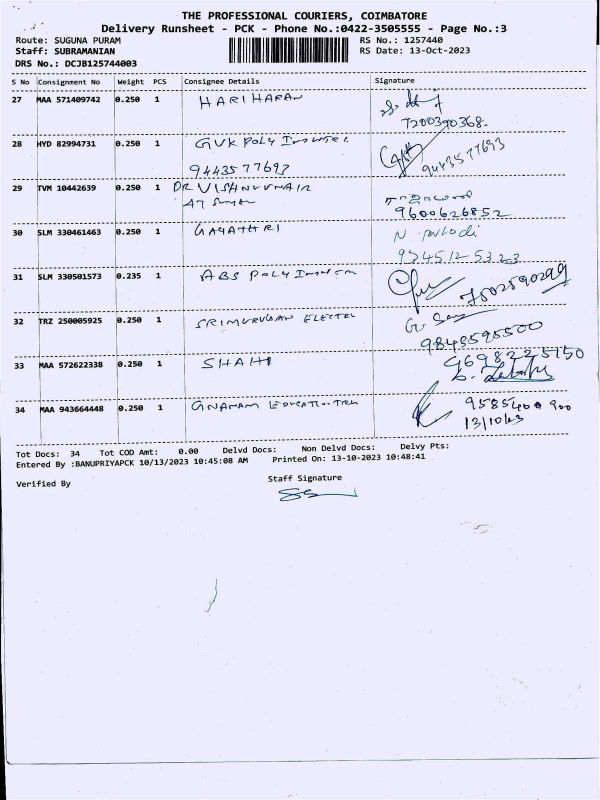 THE PROFESSIONAL COURIERS, COIMBATORE
Delivery Runsheet - PCK - Phone No.:0422-3505555 - Page No.:3
Route: SUGUNA PURAM RS No.: 1257440
Staff: SUBRAMANIAN RS Date: 13-Oct-2023
DRS No.: DCJB125744003
S No Consignment No Weight PCS Consignee Details Signature
27 MAA 571409742 0.250 1 HARIHARAN
7200390368.
28 HYD 82994731 0.250 1 GVK POLY
9443577693 9443577693
29 TVM 10442639 0.250 1 DR VISHNU NAIR
9600626852
30 SLM 330461463 0.250 1 GAYATHRI
9345125323
31 SLM 330501573 0.235 1 ABS POLY
7502590299
32 TRZ 250005925 0.250 1 SRI MURUGAN ELECTRL
9843595500
33 MAA 572622338 0.250 1 SHAHI 9698225150
34 MAA 943664448 0.250 1 GNANAM 9585400900
13/10/23
Tot Docs: 34 Tot COD Amt: 0.00 Delvd Docs: Non Delvd Docs: Delvy Pts:
Entered By :BANUPRIYAPCK 10/13/2023 10:45:08 AM Printed On: 13-10-2023 10:48:41
Verified By Staff Signature